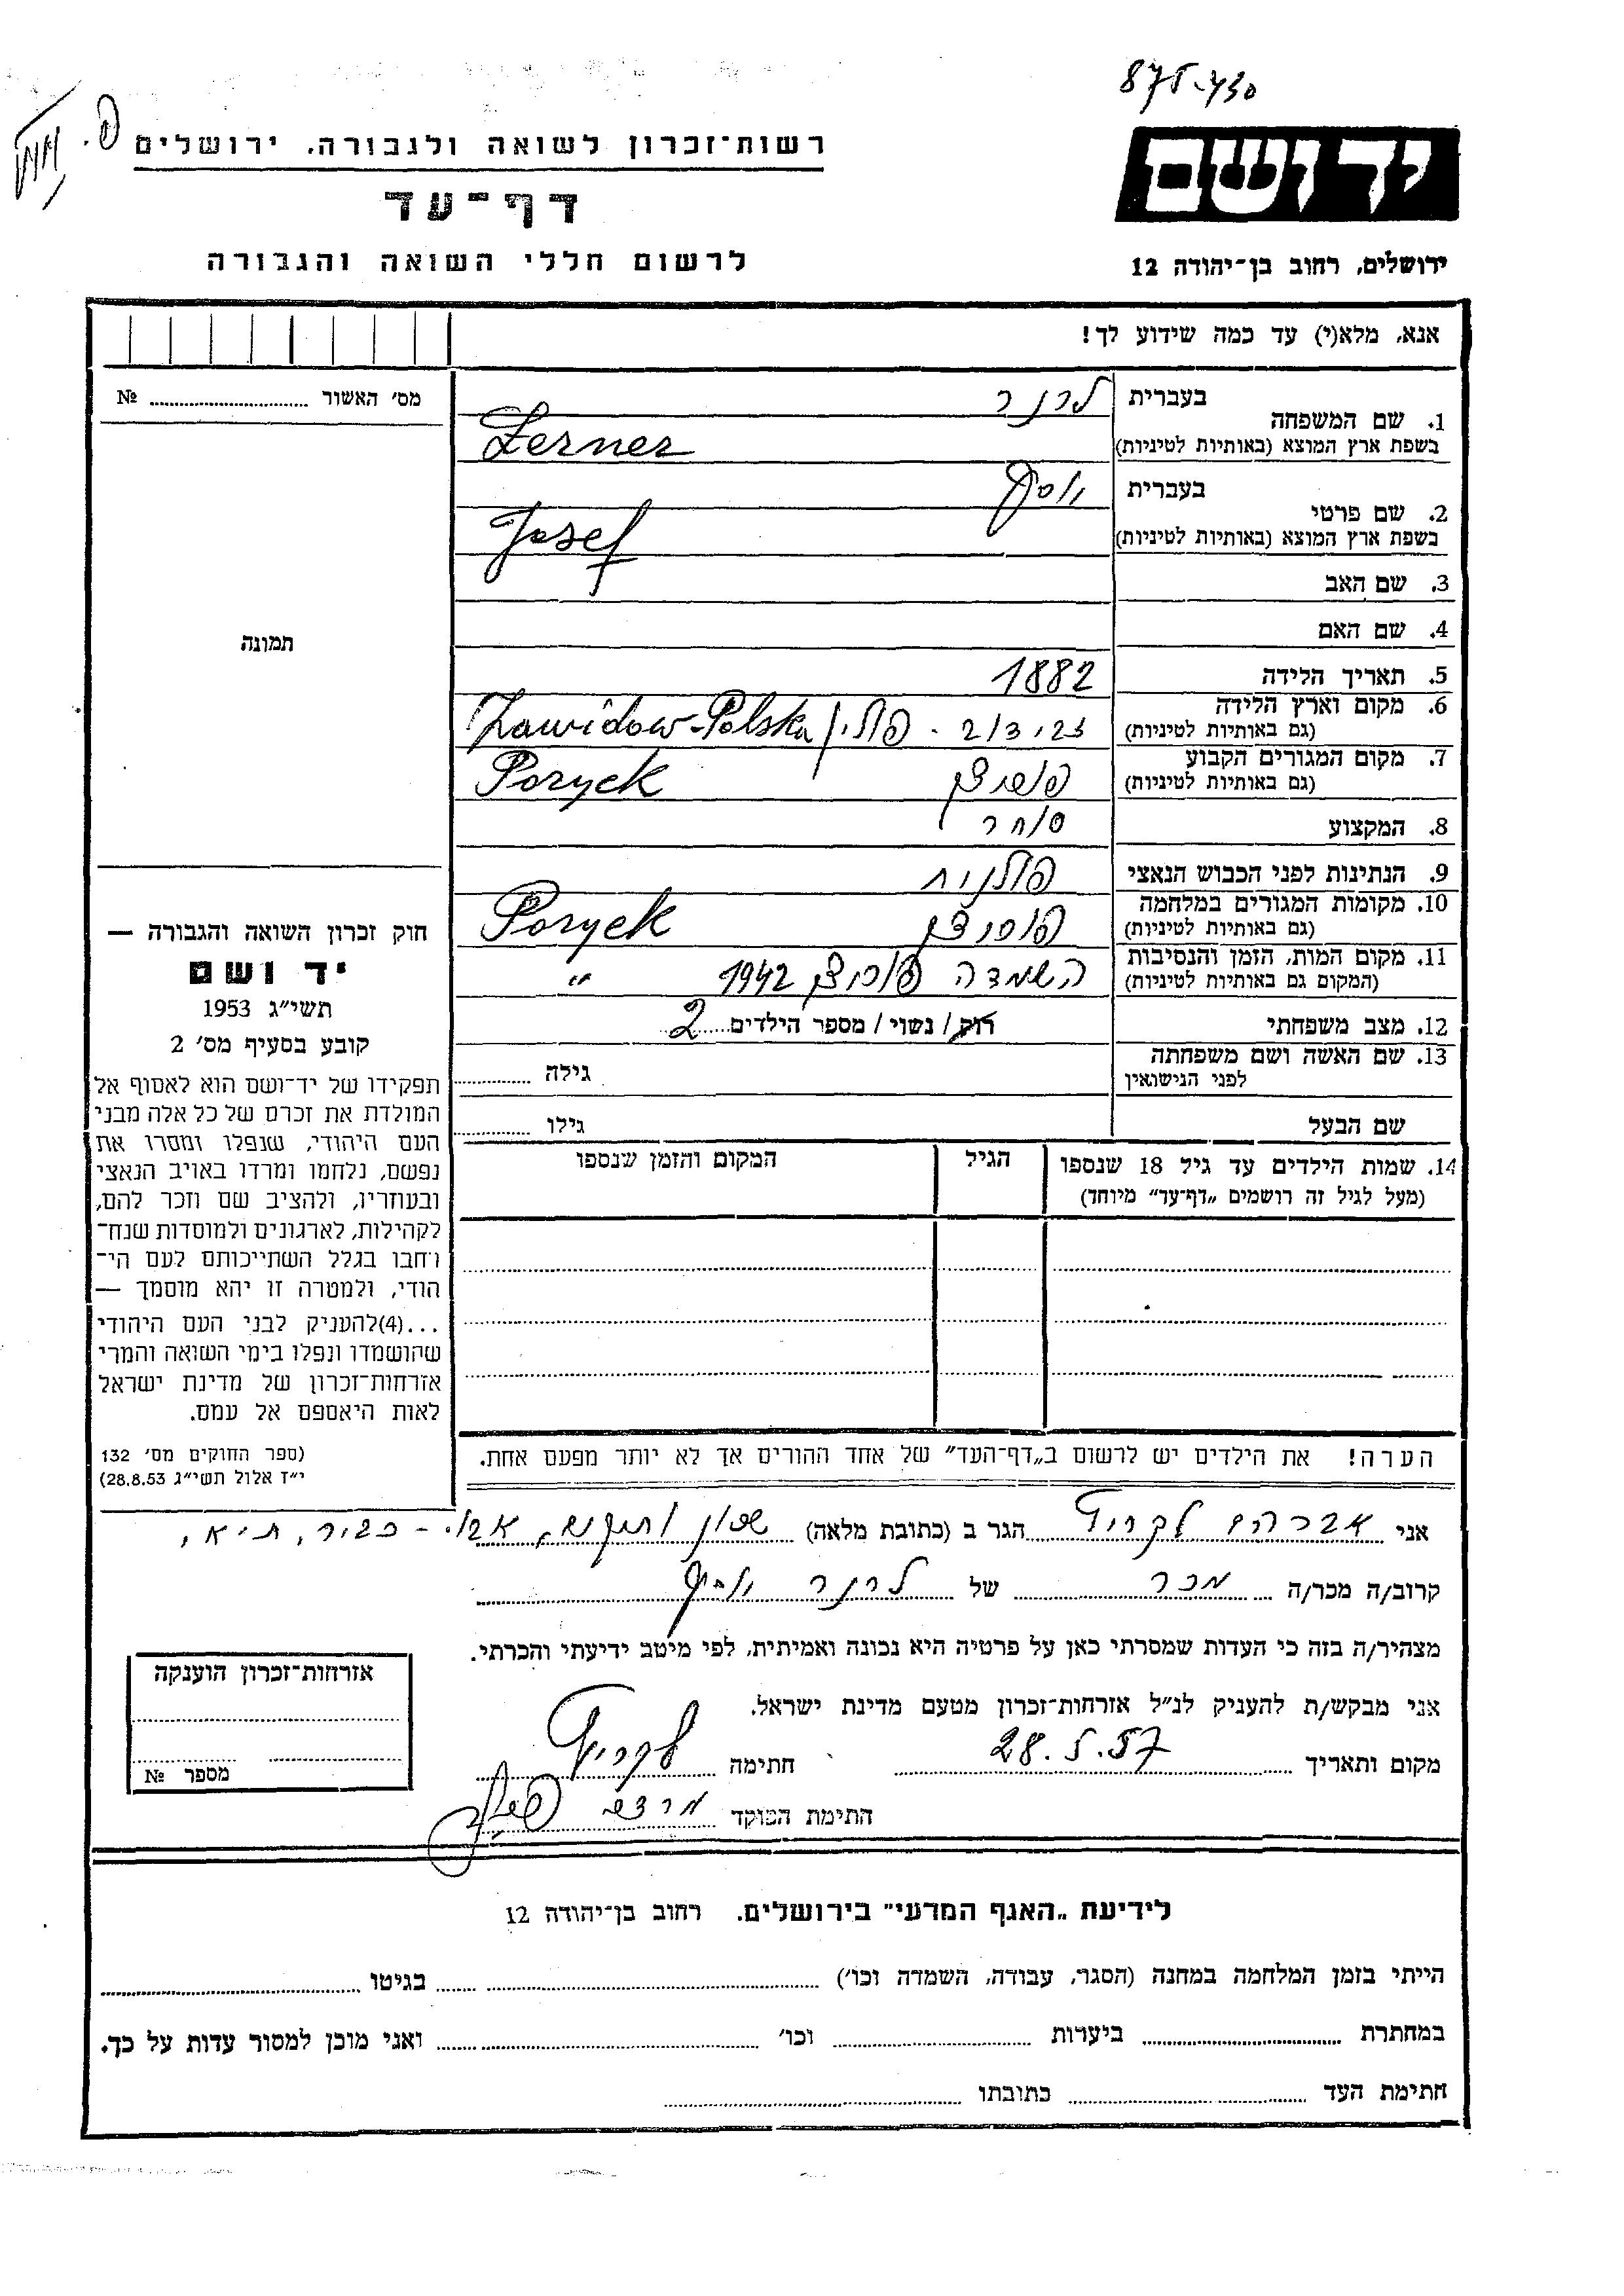 875-430
רשות־זכרון לשואה ולגבורה. ירושלים
יד ושם
דף־עד
לרשום חללי השואה והגבורה
ירושלים, רחוב בן־יהודה 12
אנא, מלא(י) עד כמה שידוע לך!
מס' האשור № ..........
1. שם המשפחה בעברית לרנר
בשפת ארץ המוצא (באותיות לטיניות) Lerner
2. שם פרטי בעברית יוסף
בשפת ארץ המוצא (באותיות לטיניות) Josef
3. שם האב
4. שם האם
תמונה
5. תאריך הלידה 1882
6. מקום וארץ הלידה
(גם באותיות לטיניות) זבידוב - פולין Zawidow-Polska
7. מקום המגורים הקבוע
(גם באותיות לטיניות) Poryck
8. המקצוע סוחר
9. הנתינות לפני הכבוש הנאצי פולנית
10. מקומות המגורים במלחמה
(גם באותיות לטיניות) פוריצק Poryck
11. מקום המות, הזמן והנסיבות
(המקום גם באותיות לטיניות) השמדה פוריצק 1942 "
12. מצב משפחתי רוק / נשוי / מספר הילדים 2
13. שם האשה ושם משפחתה
לפני הנישואין גילה ..........
שם הבעל גילו ..........
14. שמות הילדים עד גיל 18 שנספו
(מעל לגיל זה רושמים „דף־עד" מיוחד)
הגיל
המקום והזמן שנספו
חוק זכרון השואה והגבורה —
יד ושם
תשי"ג 1953
קובע בסעיף מס' 2
תפקידו של יד־ושם הוא לאסוף אל
המולדת את זכרם של כל אלה מבני
העם היהודי, שנפלו ומסרו את
נפשם, נלחמו ומרדו באויב הנאצי
ובעוזריו, ולהציב שם וזכר להם,
לקהילות, לארגונים ולמוסדות שנח־
רבו בגלל השתייכותם לעם הי־
הודי, ולמטרה זו יהא מוסמך —
...(4)להעניק לבני העם היהודי
שהושמדו ונפלו בימי השואה והמרי
אזרחות־זכרון של מדינת ישראל
לאות היאספם אל עמם.
(ספר החוקים מס' 132
י"ז אלול תשי"ג 28.8.53)
הערה! את הילדים יש לרשום ב„דף־העד" של אחד ההורים אך לא יותר מפעם אחת.
אני אברהם הגר ב (כתובת מלאה) שכון אבו-כביר, ת"א,
קרוב/ה מכר/ה מכר של לרנר יוסף
מצהיר/ה בזה כי העדות שמסרתי כאן על פרטיה היא נכונה ואמיתית, לפי מיטב ידיעתי והכרתי.
אני מבקש/ת להעניק לנ"ל אזרחות־זכרון מטעם מדינת ישראל.
מקום ותאריך 28.5.57 חתימה
חתימת הפוקד
אזרחות־זכרון הוענקה
מספר №
לידיעת „האגף המדעי" בירושלים. רחוב בן־יהודה 12
הייתי בזמן המלחמה במחנה (הסגר, עבודה, השמדה וכו') .......... בגיטו ..........
במחתרת .......... ביערות .......... וכו' .......... ואני מוכן למסור עדות על כך.
חתימת העד .......... כתובתו ..........